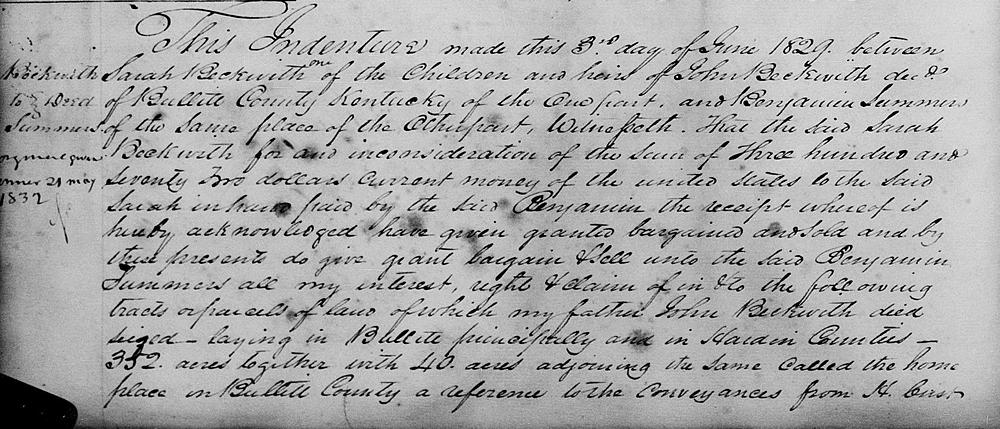 This Indenture made this 3rd day of June 1829. between
Beckwith
to Deed
Summers
given
21 may
1832
Sarah Beckwith one of the Children and heirs of John Beckwith decd
of Bullitt County Kentucky of the One part, and Benjamin Summers
of the same place of the Other part, Witnesseth. That the said Sarah
Beckwith for and inconsideration of the sum of Three hundred and
seventy two dollars current money of the united states to the said
Sarah in hand paid by the said Benjamin the receipt whereof is
hereby acknowledged have given granted bargained and sold and by
these presents do give grant bargain & sell unto the said Benjamin
Summers all my interest, right & claim of in & to the following
tracts or parcels of land of which my father John Beckwith died
seized - laying in Bullitt principally and in Hardin Counties -
352. acres together with 40. acres adjoining the same called the home
place in Bullitt County a reference to the conveyances from H. Crist